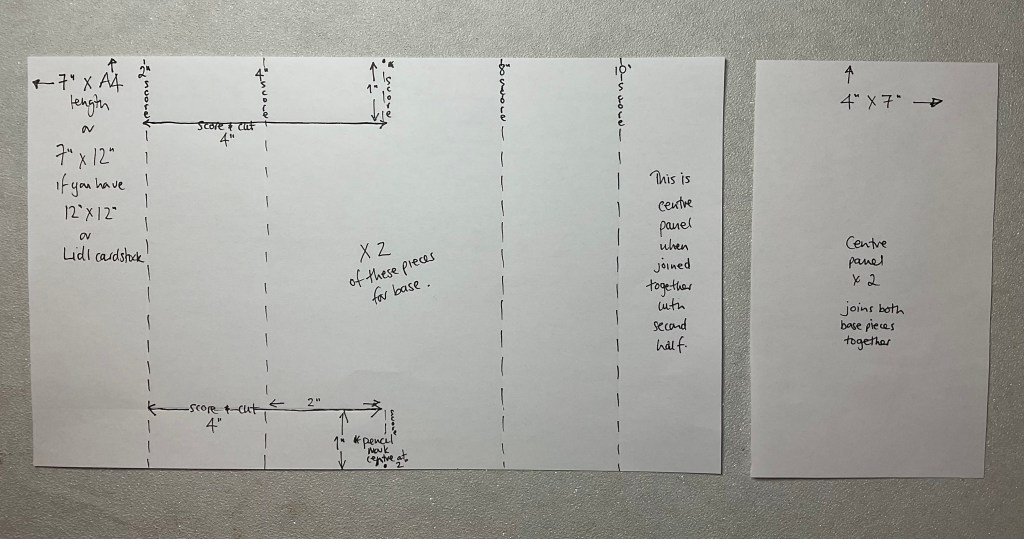 7" X A4
length
or
7" X 12"
if you have
12" X 12"
or
Lidl cardstock
2"
score
4"
score
1"
score
8"
score
10"
score
score & cut
4"
X 2
of these pieces
for base.
This is
centre
panel
when
joined
together
with
second
half.
score & cut
4"
2"
1"
score
* pencil
mark
centre at
2"
4" X 7"
Centre
panel
x 2
joins both
base pieces
together